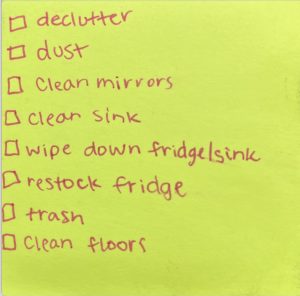 declutter
dust
Clean mirrors
clean sink
wipe down fridge/sink
restock fridge
trash
Clean floors